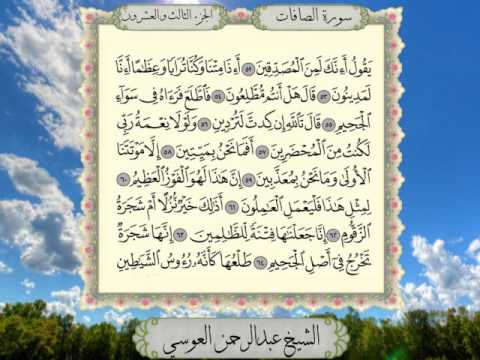 سورة الصافات
الجزء الثالث والعشرون
يَقُولُ أَءِنَّكَ لَمِنَ الْمُصَدِّقِينَ ٥٢ أَءِذَا مِتْنَا وَكُنَّا تُرَابًا وَعِظَٰمًا أَءِنَّا
لَمَدِينُونَ ٥٣ قَالَ هَلْ أَنتُم مُّطَّلِعُونَ ٥٤ فَاطَّلَعَ فَرَءَاهُ فِي سَوَآءِ
الْجَحِيمِ ٥٥ قَالَ تَاللَّهِ إِن كِدتَّ لَتُرْدِينِ ٥٦ وَلَوْلَا نِعْمَةُ رَبِّي
لَكُنتُ مِنَ الْمُحْضَرِينَ ٥٧ أَفَمَا نَحْنُ بِمَيِّتِينَ ٥٨ إِلَّا مَوْتَتَنَا
الْأُولَىٰ وَمَا نَحْنُ بِمُعَذَّبِينَ ٥٩ إِنَّ هَٰذَا لَهُوَ الْفَوْزُ الْعَظِيمُ ٦٠
لِمِثْلِ هَٰذَا فَلْيَعْمَلِ الْعَٰمِلُونَ ٦١ أَذَٰلِكَ خَيْرٌ نُّزُلًا أَمْ شَجَرَةُ
الزَّقُّومِ ٦٢ إِنَّا جَعَلْنَٰهَا فِتْنَةً لِّلظَّٰلِمِينَ ٦٣ إِنَّهَا شَجَرَةٌ
تَخْرُجُ فِي أَصْلِ الْجَحِيمِ ٦٤ طَلْعُهَا كَأَنَّهُ رُءُوسُ الشَّيَٰطِينِ
الشيخ عبدالرحمن العوسي